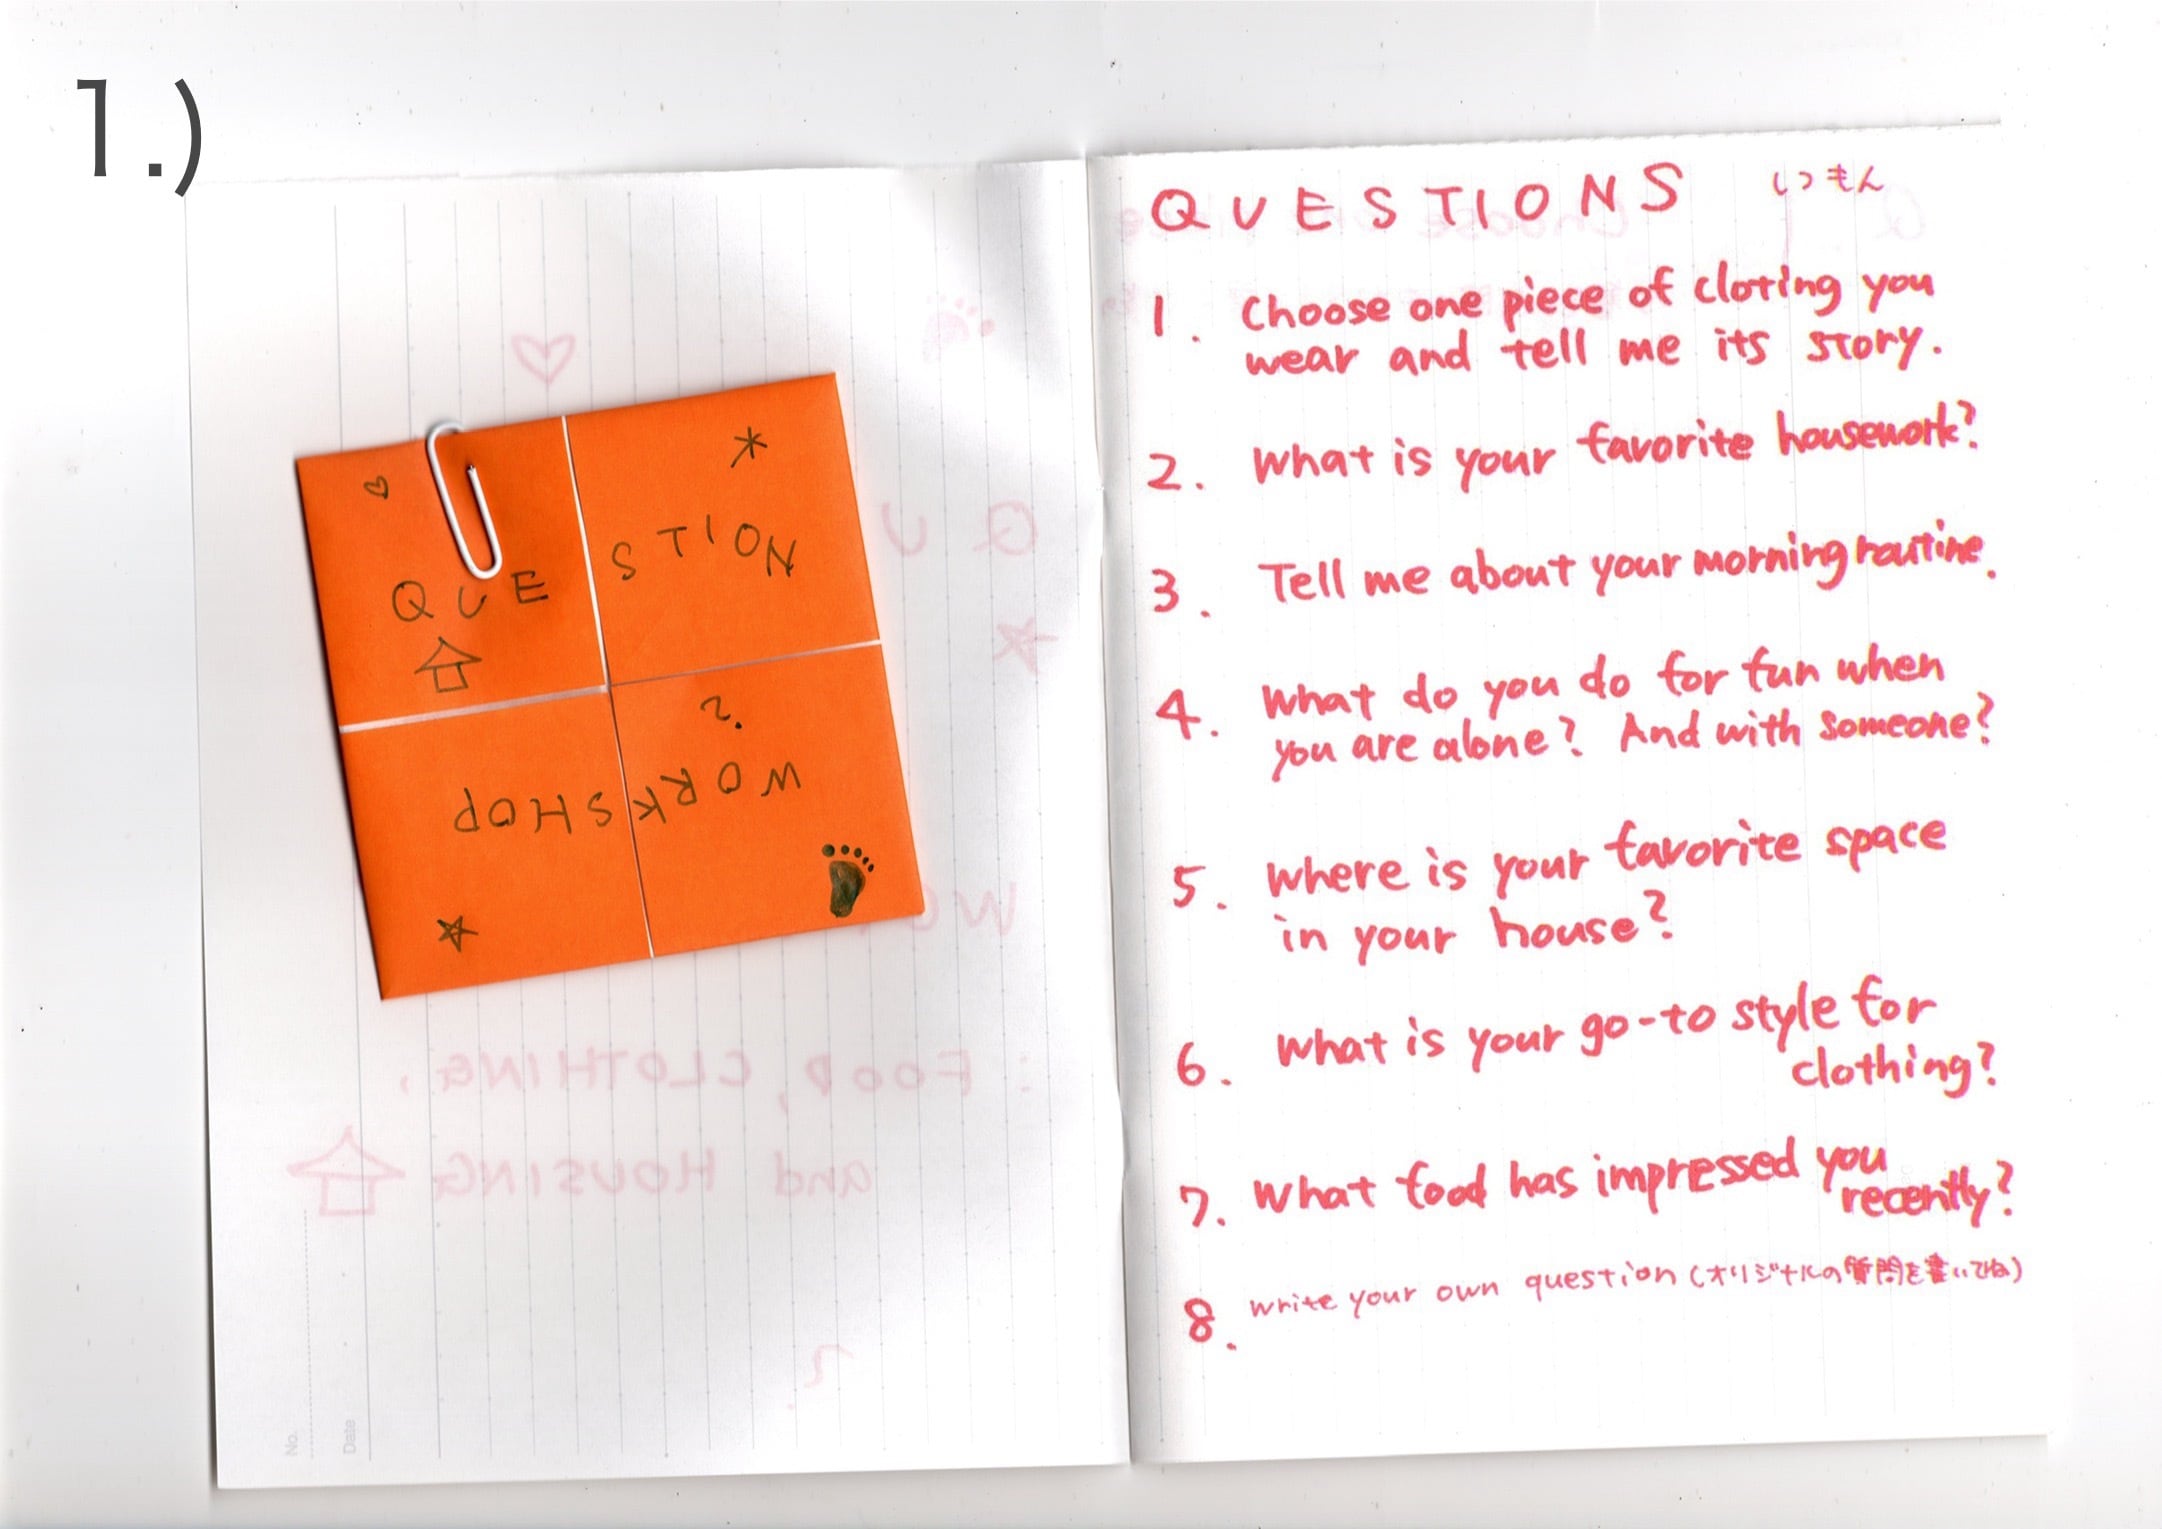 1.)
QUESTION
WORKSHOP
?
QU
WO
: FOOD, CLOTHING,
and HOUSING
?
No.
Date
QUESTIONS しつもん
1. Choose one piece of cloting you
wear and tell me its story.
2. What is your favorite housework?
3. Tell me about your morning routine.
4. What do you do for fun when
you are alone? And with someone?
5. Where is your favorite space
in your house?
6. What is your go-to style for
clothing?
7. What food has impressed you
recently?
8. write your own question (オリジナルの質問を書いてね)